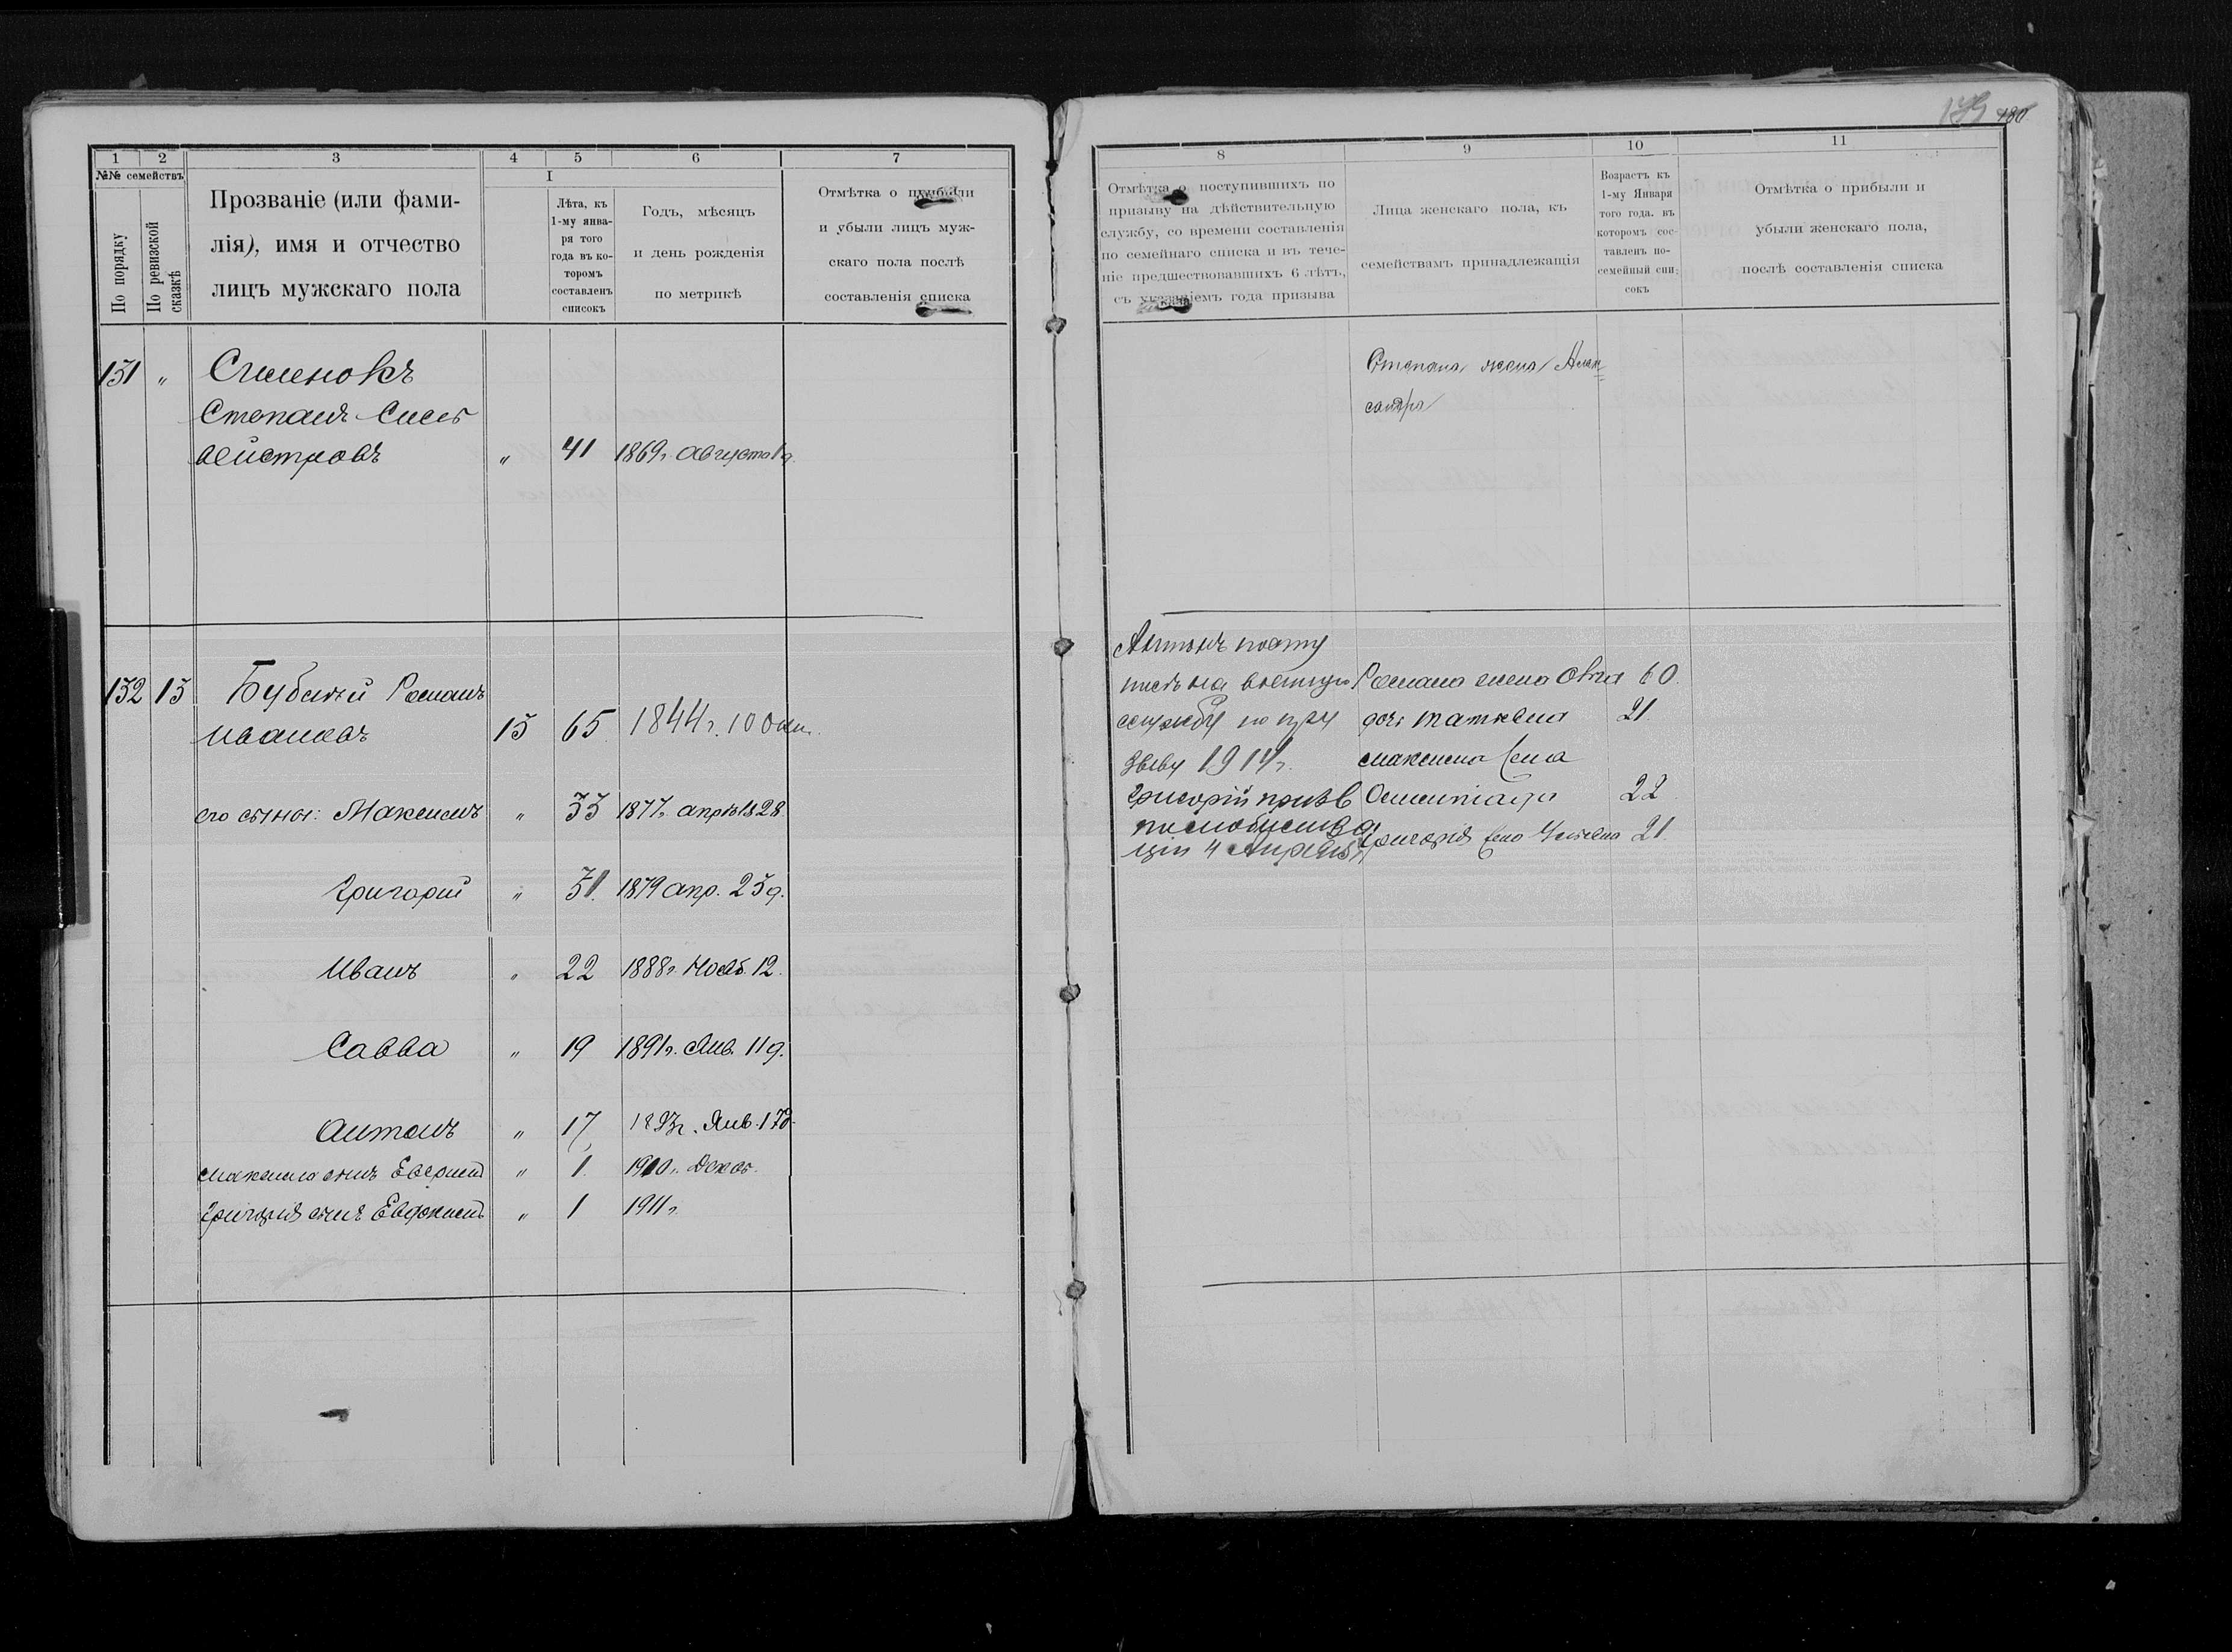 180
1 2 3 4 5 6 7
№№ семействъ
По порядку
По ревизской сказкѣ
Прозваніе (или фами-
лія), имя и отчество
лицъ мужскаго пола
I
Лѣта, къ
1-му янва-
ря того
года въ ко-
торомъ
составленъ
списокъ
Годъ, мѣсяцъ
и день рожденія
по метрикѣ
Отмѣтка о прибыли
и убыли лицъ муж-
скаго пола послѣ
составленія списка
131 "
Степанъ
" 41 1869г. Августа 1 д.
132 15 Бубаный Романъ
Ивановъ 15 65 1844г. 1 Окт.
его сыны: Максимъ " 33 1877г. апрѣля 28.
Григорій " 31. 1879 апр. 25 д.
Иванъ " 22 1888г. Нояб. 12.
Савва " 19 1891г. Янв. 11 д.
Антонъ " 17 1893г. Янв. 17 д.
Максима сынъ " 1. 1910г. Декаб.
Григорія сынъ Евфимій " 1 1911г.
8 9 10 11
Отмѣтка о поступившихъ по
призыву на дѣйствительную
службу, со времени составленія
по семейнаго списка и въ тече-
ніе предшествовавшихъ 6 лѣтъ,
съ указаніемъ года призыва
Лица женскаго пола, къ
семействамъ принадлежащія
Возрастъ къ
1-му Января
того года. въ
которомъ сос-
тавленъ по-
семейный спи-
сокъ
Отмѣтка о прибыли и
убыли женскаго пола,
послѣ составленія списка
Степана жена Алек
сандра
Антонъ посту
пилъ на военную
службу по при
зыву 1914г.
Григорій призв
по мобилиза
ціи 4
Романа жена 60.
дочь Татьяна 21.
Максима жена
22
Григорія жена 21.